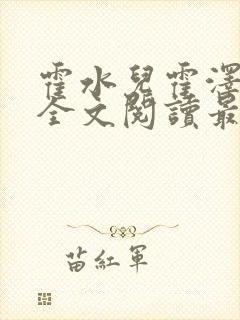 霍水兒霍澤
全文閱讀最
苗紅軍